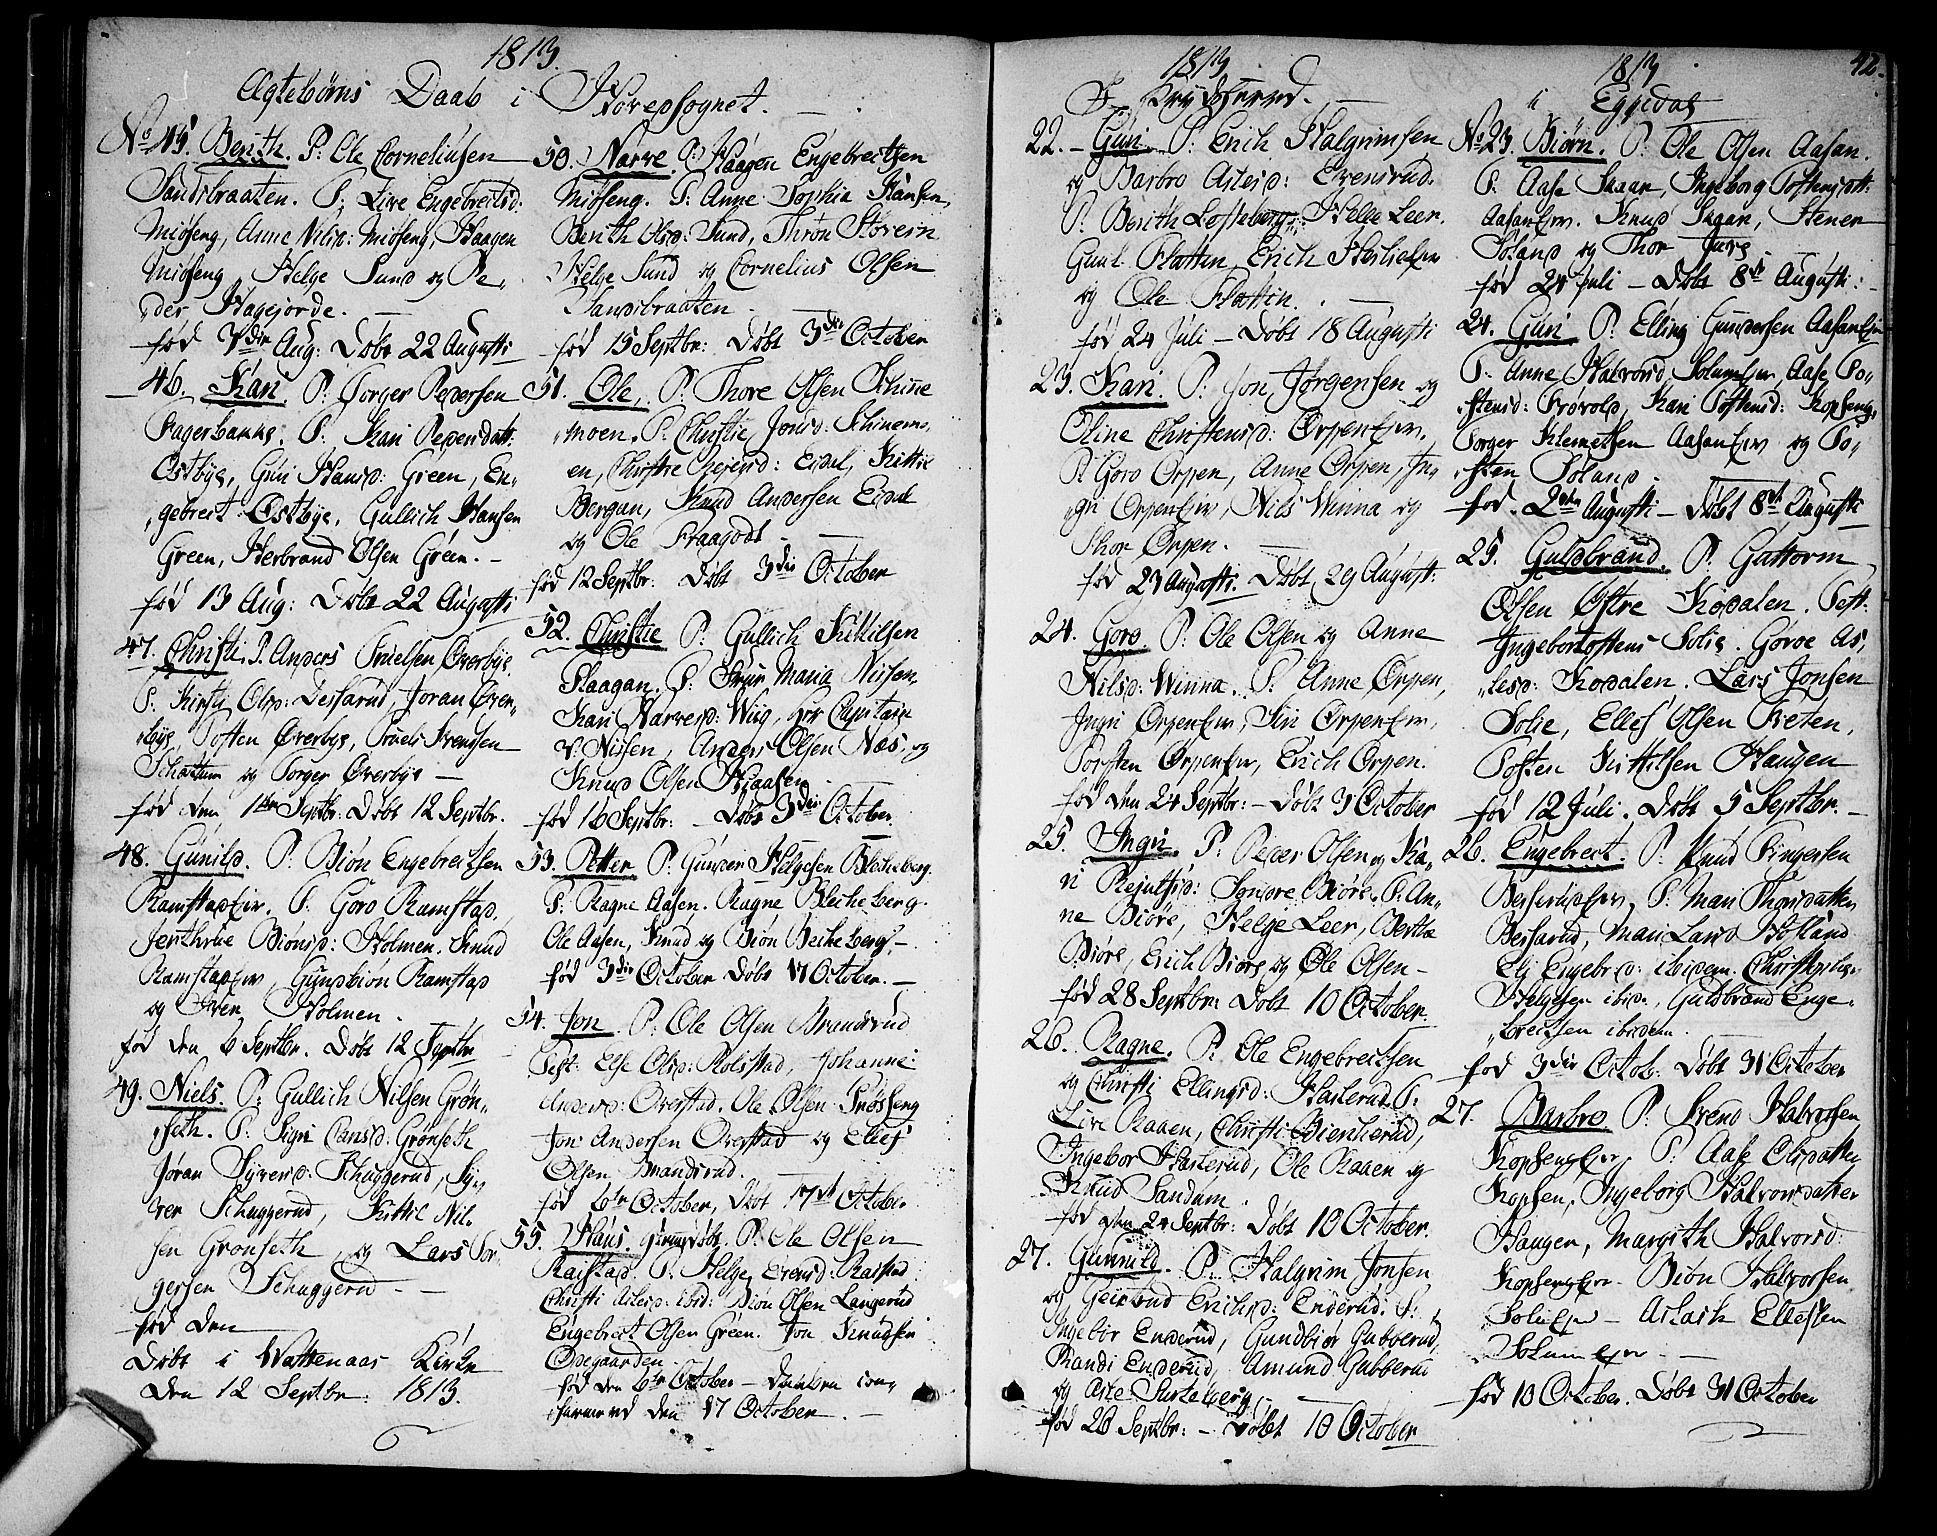 1813.
Ægtebørns Daab i Hovedsognet.
No 45. Berith. P: Ole Corneliusen
Sandsbraaten. F: Live Engebretsd:
Miøseng, Anne Nilsd: Miøseng, Haagen
Miøseng, Helge Sund og Pe,
der Hagejorde.
fød 7den Aug: Døbt 22 Augusti
46. Kari. P: Torger Pedersen
Fagerbakke. F: Kari Pedersdatt:
Østbye, Guri Hansd: Green, En,
gebret Østbye, Gullich Hansen
Green, Herbrand Olsen Green.
fød 13 Aug: Døbt 22 Augusti
47. Christi. P. Anders Truelsen Overbye.
F. Kirsti Olsd: Over,
bye, Toften Overbye, Truels Svendsen
og Torger Overbye
fød den 1ste Septbr: Døbt 12 Septbr.
48. Gunild. P: Biøn Engebretsen
Ramstadeier. F: Goro Ramstad,
Jerthrue Biønsd: Holmen. Knud
Ramstadeier, Gundbion Ramstad
og Iver Holmen.
fød den 6 Septbr. Døbt 12 Septbr
49. Niels. P: Gullich Nilsen Grøn,
seth. F: Sigri Grønseth
Jøran Syversd: Schuggerud, Sy,
ver Schuggerud, Kittil Nil,
sen Grønseth, og Lars Tor,
gersen Schuggerud
fød den
Døbt i Wattenaas Kirke
den 12 Septbr. 1813.
50. Narve. P: Haagen Engebretsen
Miøseng. F: Anne Sophia Hansen,
Berith Olsd: Sund, Thron Støvern
Helge Sund og Cornelius Olsen
Sandsbraaten
fød 15 Septbr: Døbt 3die October
51. Ole. P: Thore Olsen Skine
moen. F: Christie Jonsd: Skinemo,
en, Christie Eidal, Kittil
Bergan, Knud Andersen Eidal
og Ole Praagodt
fød 12 Septbr: Døbt 3die October
52. Christie P: Gullich Kittilsen
Flaagan. F: Frue Maria Nissen,
Kari Narvesd: Wiig, hr Capitain
v: Nissen, Anders Olsen Næs, og
Knud Olsen Haasen
fød 16 Septbr: Døbt 3die October.
53. Petter P: Gunder Helgesen Blecheberg.
F: Ragne Aasen. Ragne Blecheberg.
Ole Aasen, Knud og Biøn Blecheberg.
fød 3die October Døbt 17 October.
54. Jon. P: Ole Olsen Brandsrud
Test: Else Olsd: Rolstad, Johanne
Andersd: Overstad. Ole Olsen Snøseng
Jon Andersen Overstad og Ellef
Olsen Brandsrud.
fød 6te October, Døbt 17de October.
55. Hans. hjemedøbt. P: Ole Olsen
Raistad. F: Helge Evensd: Raistad
Christi Aslesd: ibid: Biøn Olsen Langerud
Engebret Olsen Green. Jon Knudsen
Opegaarden
fød den 6te October – Daaben con,
firmered den 17 October.
1813
I Krydsherred.
22. Guri. P: Erich Halgrimsen
og Barbro Aslesd: Evensrud.
F: Berith Lofteberg, Helge Leer.
Gunl. Flatten, Erich
og Ole Flattin.
fød 24 Juli – Døbt 18 Augusti
23. Kari. P: Jon Jørgensen og
Oline Christensd: Ørpeneier.
F: Goro Ørpen, Anne Ørpen, In,
gri Ørpeneier, Nils Winna og
Thor Ørpen.
fød 23 Augusti. Døbt 29 August:
24. Goro. P: Ole Olsen og Anne
Nilsd: Winna. F: Anne Ørpen,
Ingri Ørpeneier, Siri Ørpeneier,
Torsten Ørpeneier, Erich Ørpen.
fød den 24 Septbr: – Døbt 3 October
25. Ingri. P: Peder Olsen og Ka,
ri Bjøre. F: An,
ne Biøre, Helge Leer, Berthe
Biøre, Erich Biøre og Ole Olsen
fød 28 Septbr. Døbt 10 October.
26. Ragne. P: Ole Engebretsen
og Christi Ellingsd: Hasterud. F:
Live Raaen, Christi Bienkerud,
Ingebor Hasterud, Ole Raaen og
Knud Sandum.
fød den 24 Septbr: Døbt 10 October.
27. Gunnild. P: Halgrim Jonsen
og Geirand Erichsd: Enderud. F:
Ingebor Enderud, Gundbiør Gubberud,
Randi Enderud, Amund Gubberud
og Asle Surteberg
fød 26 Septbr: – Døbt 10 October
42.
1813
i Eggedal
No 23. Biørn. P: Ole Olsen Aasan.
F: Aase Skaar, Ingeborg Toftensdatt:
Aasaneier. Knud Skaar, Stener
Soland og Thor Juvs
fød 24 Juli – Døbt 8de Augusti:
24. Guri. P: Elling Gundersen Aasaneier
F: Anne Halvorsd. Solumeier, Aase To,
stensd: Frøvold, Kari Toftensd: Kopseng,
Torger Klemetsen Aasaneier og To,
sten Soland.
fød. 2den Augusti – Døbt 8de Augusti
25. Guldbrand. P. Guttorm
Olsen Østre Kodalen. Test.
Ingebor Toftens Solie. Goroe As,
lesd: Kodalen. Lars Jonsen
Solie, Ellef Olsen Treten,
Tosten Kittilsen Haugen
fød 12 Juli. Døbt 5 Septbr.
26. Engebret. P. Knud Fingersen
F: Mari Thorsdatter
Beserud, Mari Larsd Hofland
Eli Engebrd: ibidem. Christopher
Helgesen ibid., Guldbrand Enge,
bretsen ibidem.
fød 3die Octob: Døbt 31 October
27. Barbro P: Svend Halvorsen
Kopsengeier, F: Aase Olsdatter
Kopsen, Ingeborg Halvorsdatter
Haugen, Margith Halvorsd:
Kopsengeier. Biøn Halvorsen
Solieeier – Aslach Ellefsen
Solumeier
fød 10 October. Døbt 31 October